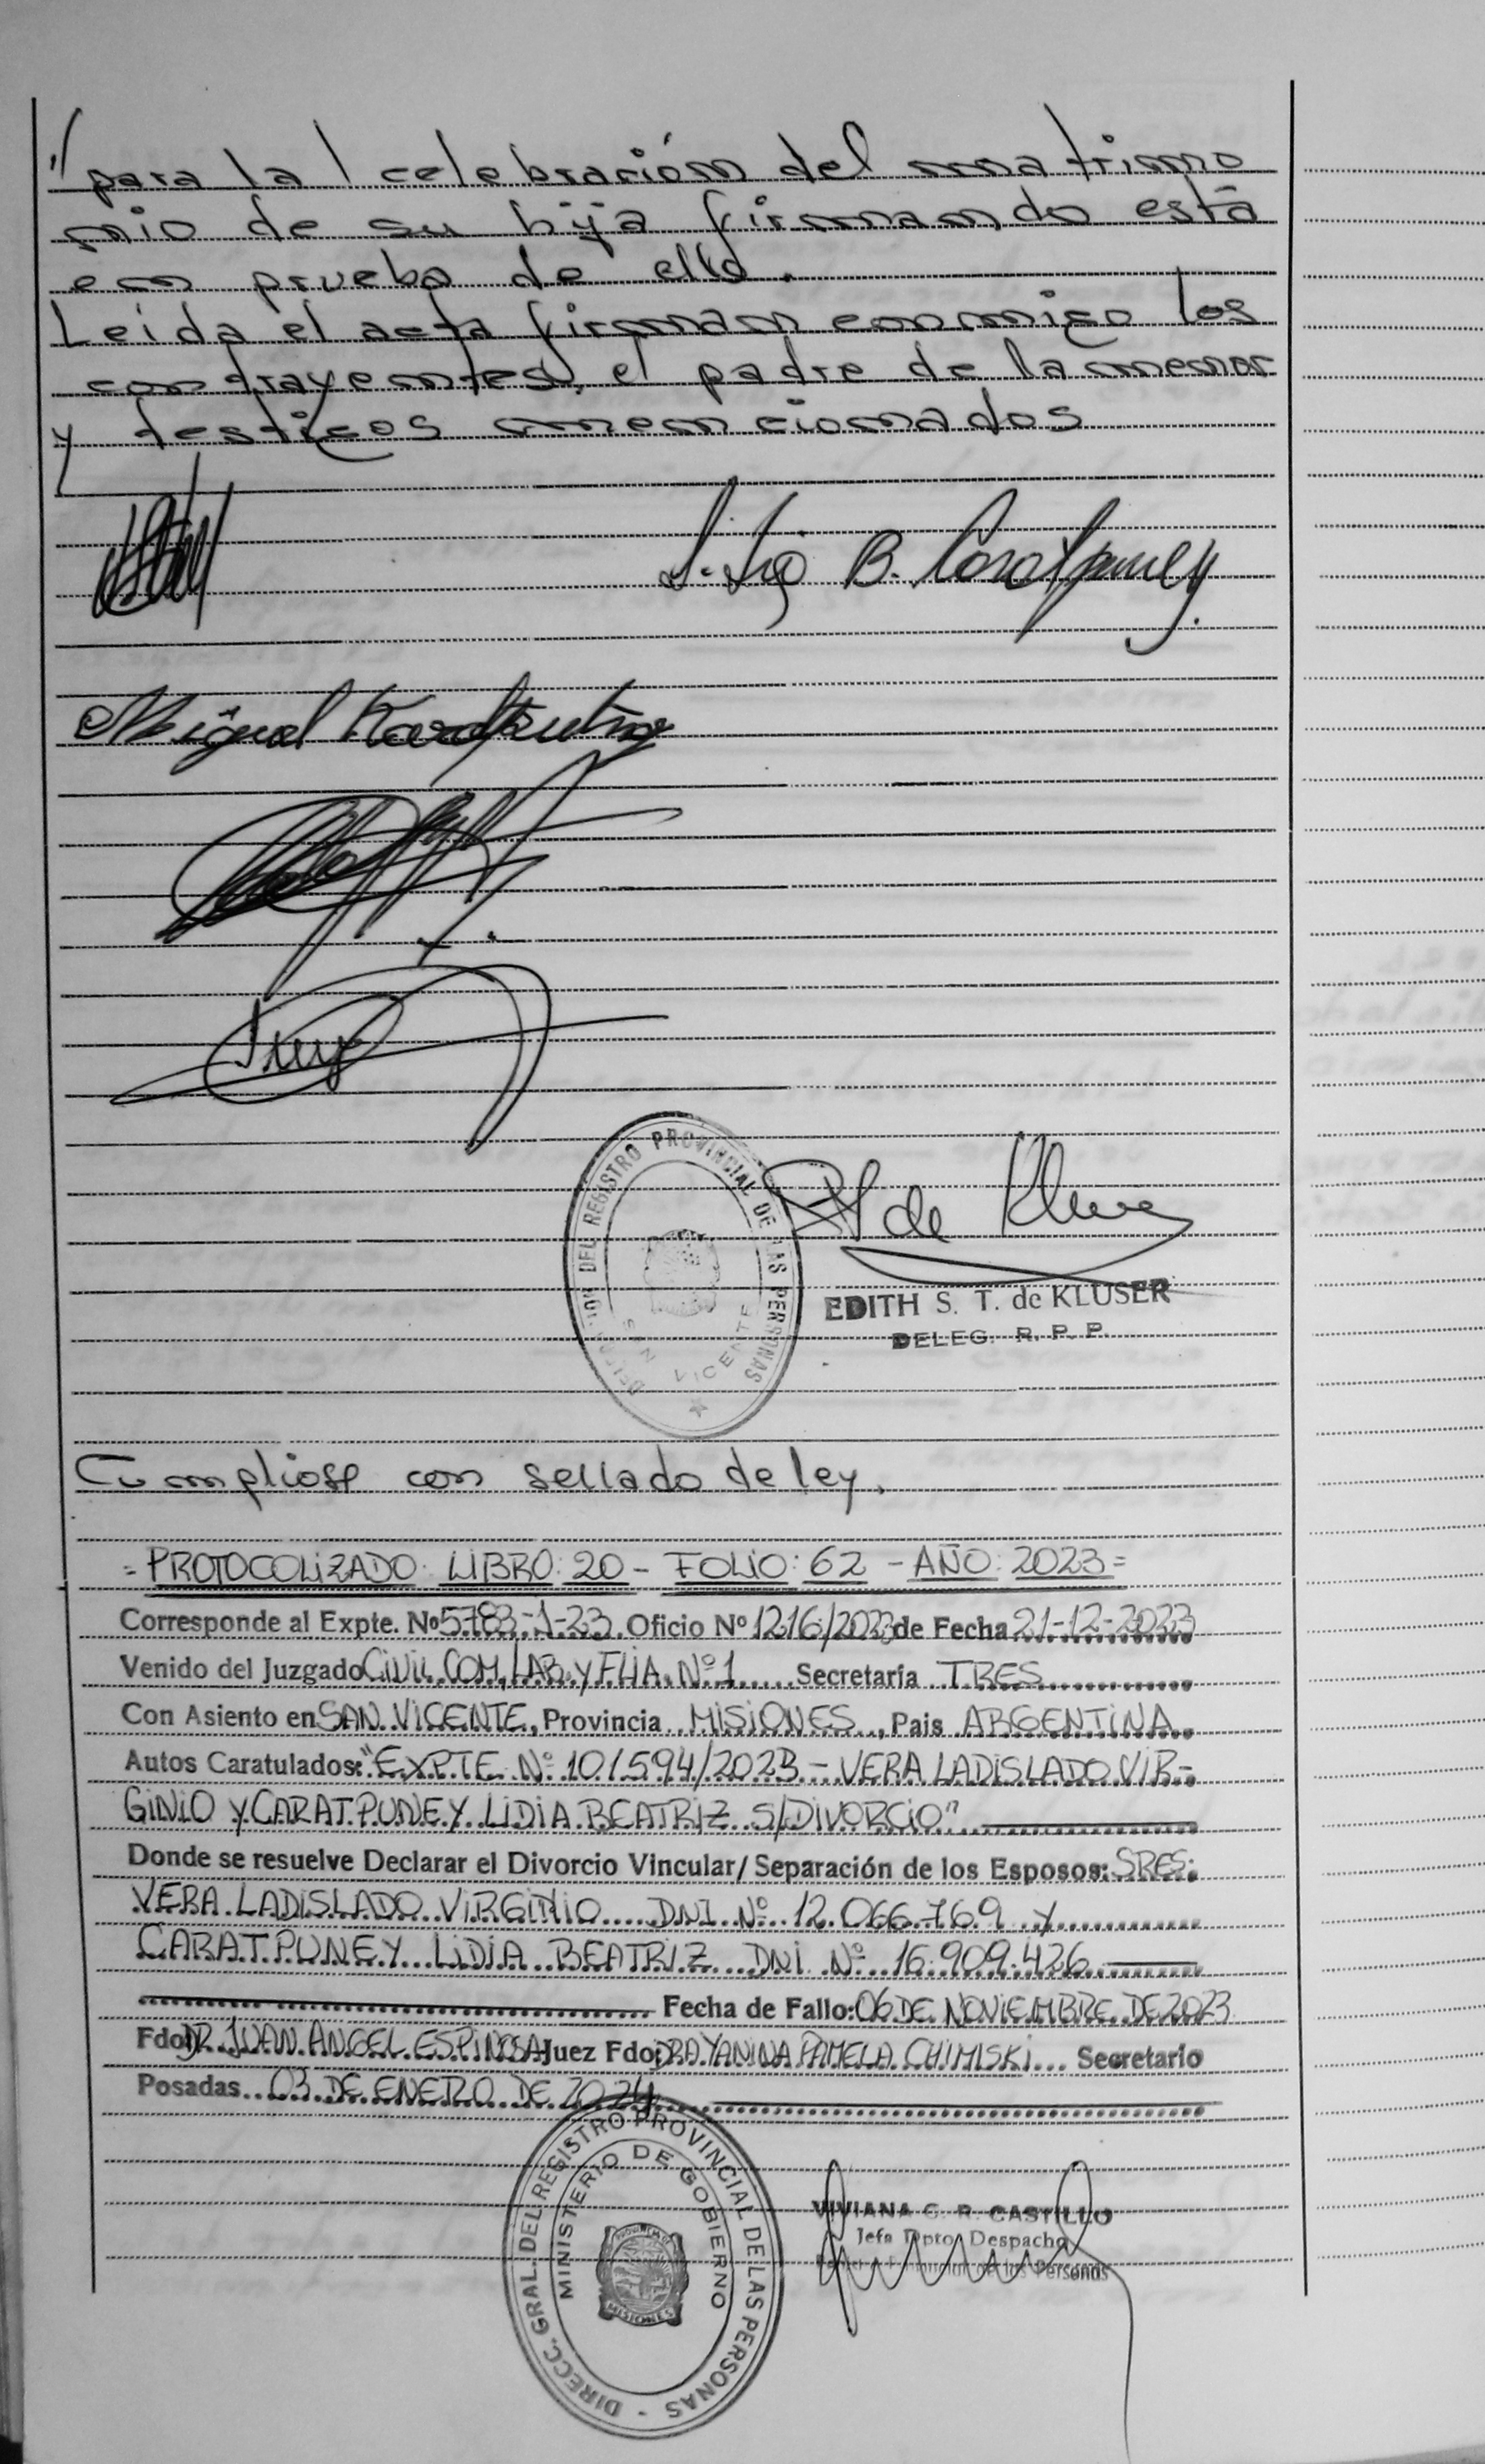 // para la celebración del matrimo
nio de su hija firmando está
en prueba de ello.
Leída el acta firman conmigo los
contrayentes, el padre de la menor
y testigos mencionados
Lidia B. Caratpuney.
Miguel Karatpuney
DELEGACION DEL REGISTRO PROVINCIAL DE LAS PERSONAS
SAN VICENTE
de Kluser
EDITH S. T. de KLUSER
DELEG. R. P. P.
Cumpliose con sellado de ley.
= PROTOCOLIZADO: LIBRO: 20 - FOLIO: 62 - AÑO: 2023 =
Corresponde al Expte. Nº 5783-1-23. Oficio Nº 1216/2023 de Fecha 21-12-2023
Venido del Juzgado CIVIL COM, LAB. y FLIA. Nº 1 Secretaría TRES
Con Asiento en SAN VICENTE, Provincia MISIONES, Pais ARGENTINA
Autos Caratulados: "EXPTE Nº 101594/2023 - VERA LADISLADO VIR-
GINIO Y CARATPUNEY LIDIA BEATRIZ S/DIVORCIO"
Donde se resuelve Declarar el Divorcio Vincular/ Separación de los Esposos: SRES:
VERA LADISLADO VIRGINIO DNI Nº 12.066.769 Y
CARATPUNEY LIDIA BEATRIZ DNI Nº 16.909.426
Fecha de Fallo: 06 DE NOVIEMBRE DE 2023
Fdo: DR. JUAN ANGEL ESPINOSA Juez Fdo: DRA YANINA PAMELA CHIMISKI Secretario
Posadas 03 DE ENERO DE 2024
DIRECC. GRAL. DEL REGISTRO PROVINCIAL DE LAS PERSONAS -
MINISTERIO DE GOBIERNO
MISIONES
VIVIANA G. R. CASTILLO
Jefa Dpto. Despacho
de las Personas